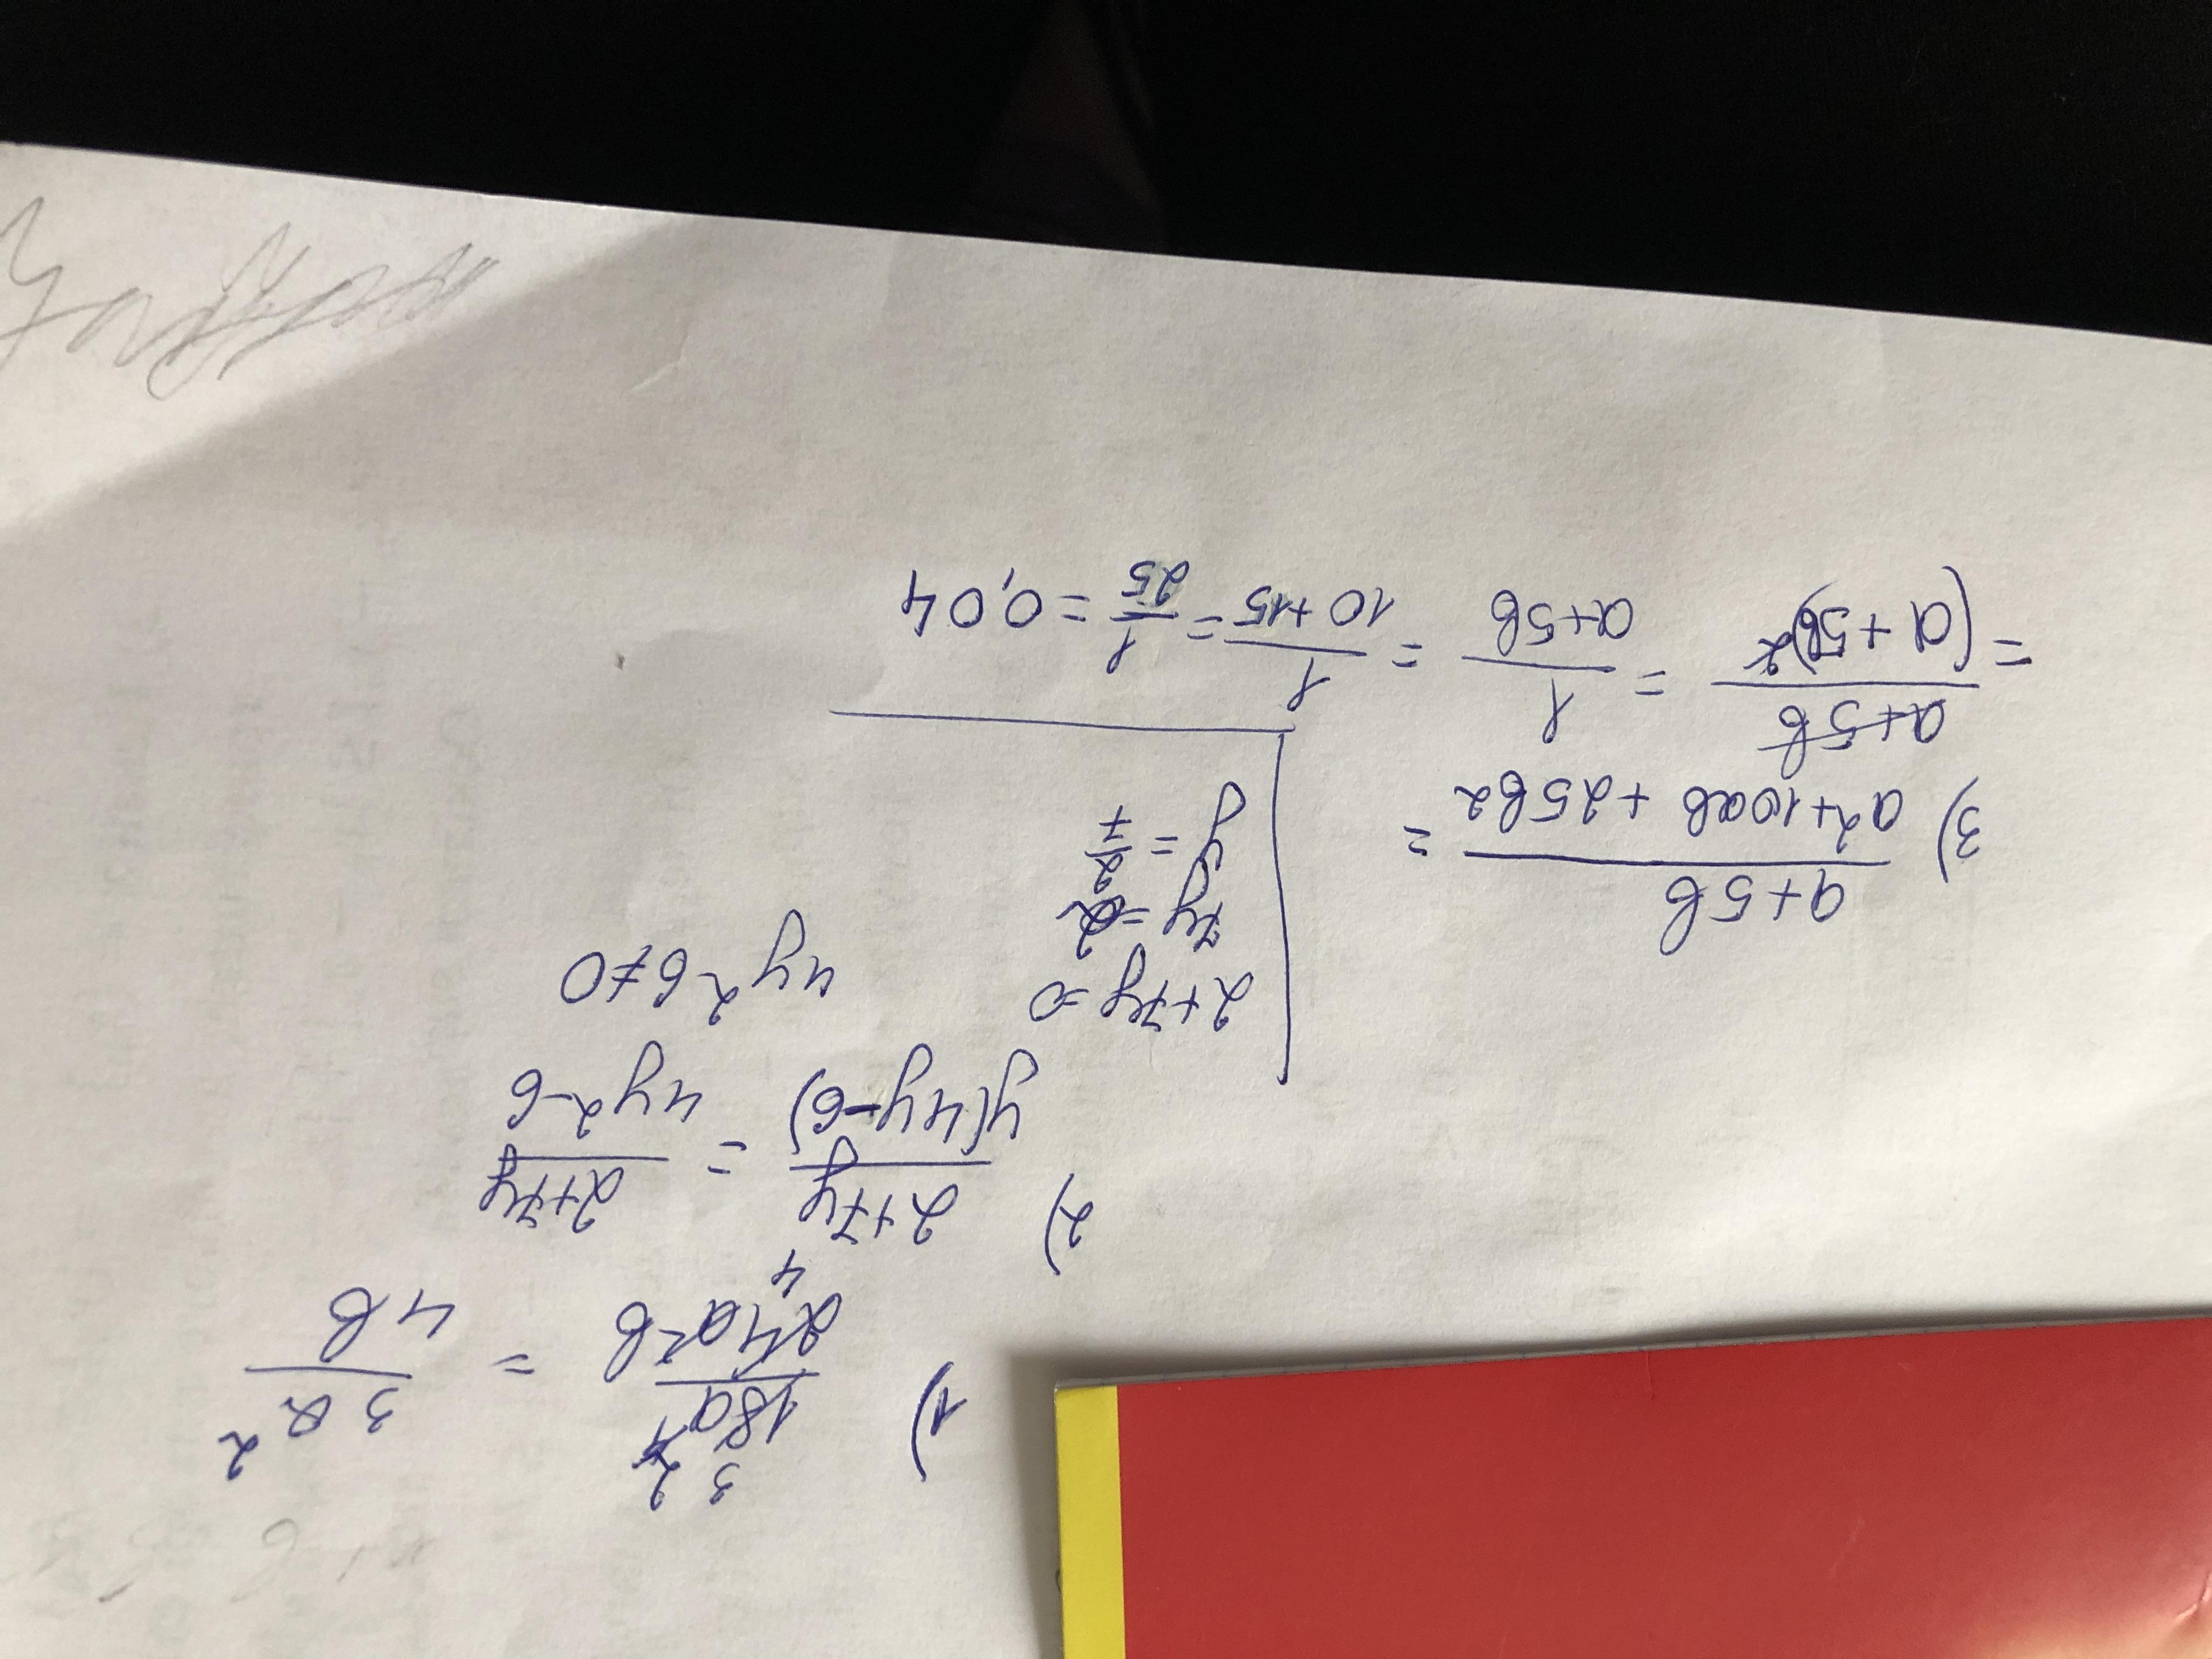 1) 18a⁴/24a²b = 3a²/4b
3 2
4
2) 2+7y/y(4y-6) = 2+7y/4y²-6
2+7y=0 4y²6≠0
7y=2
y=2/7
3) a+5b/a²+10ab+25b² =
= a+5b/(a+5b)² = 1/a+5b = 1/10+15 = 1/25 = 0,04